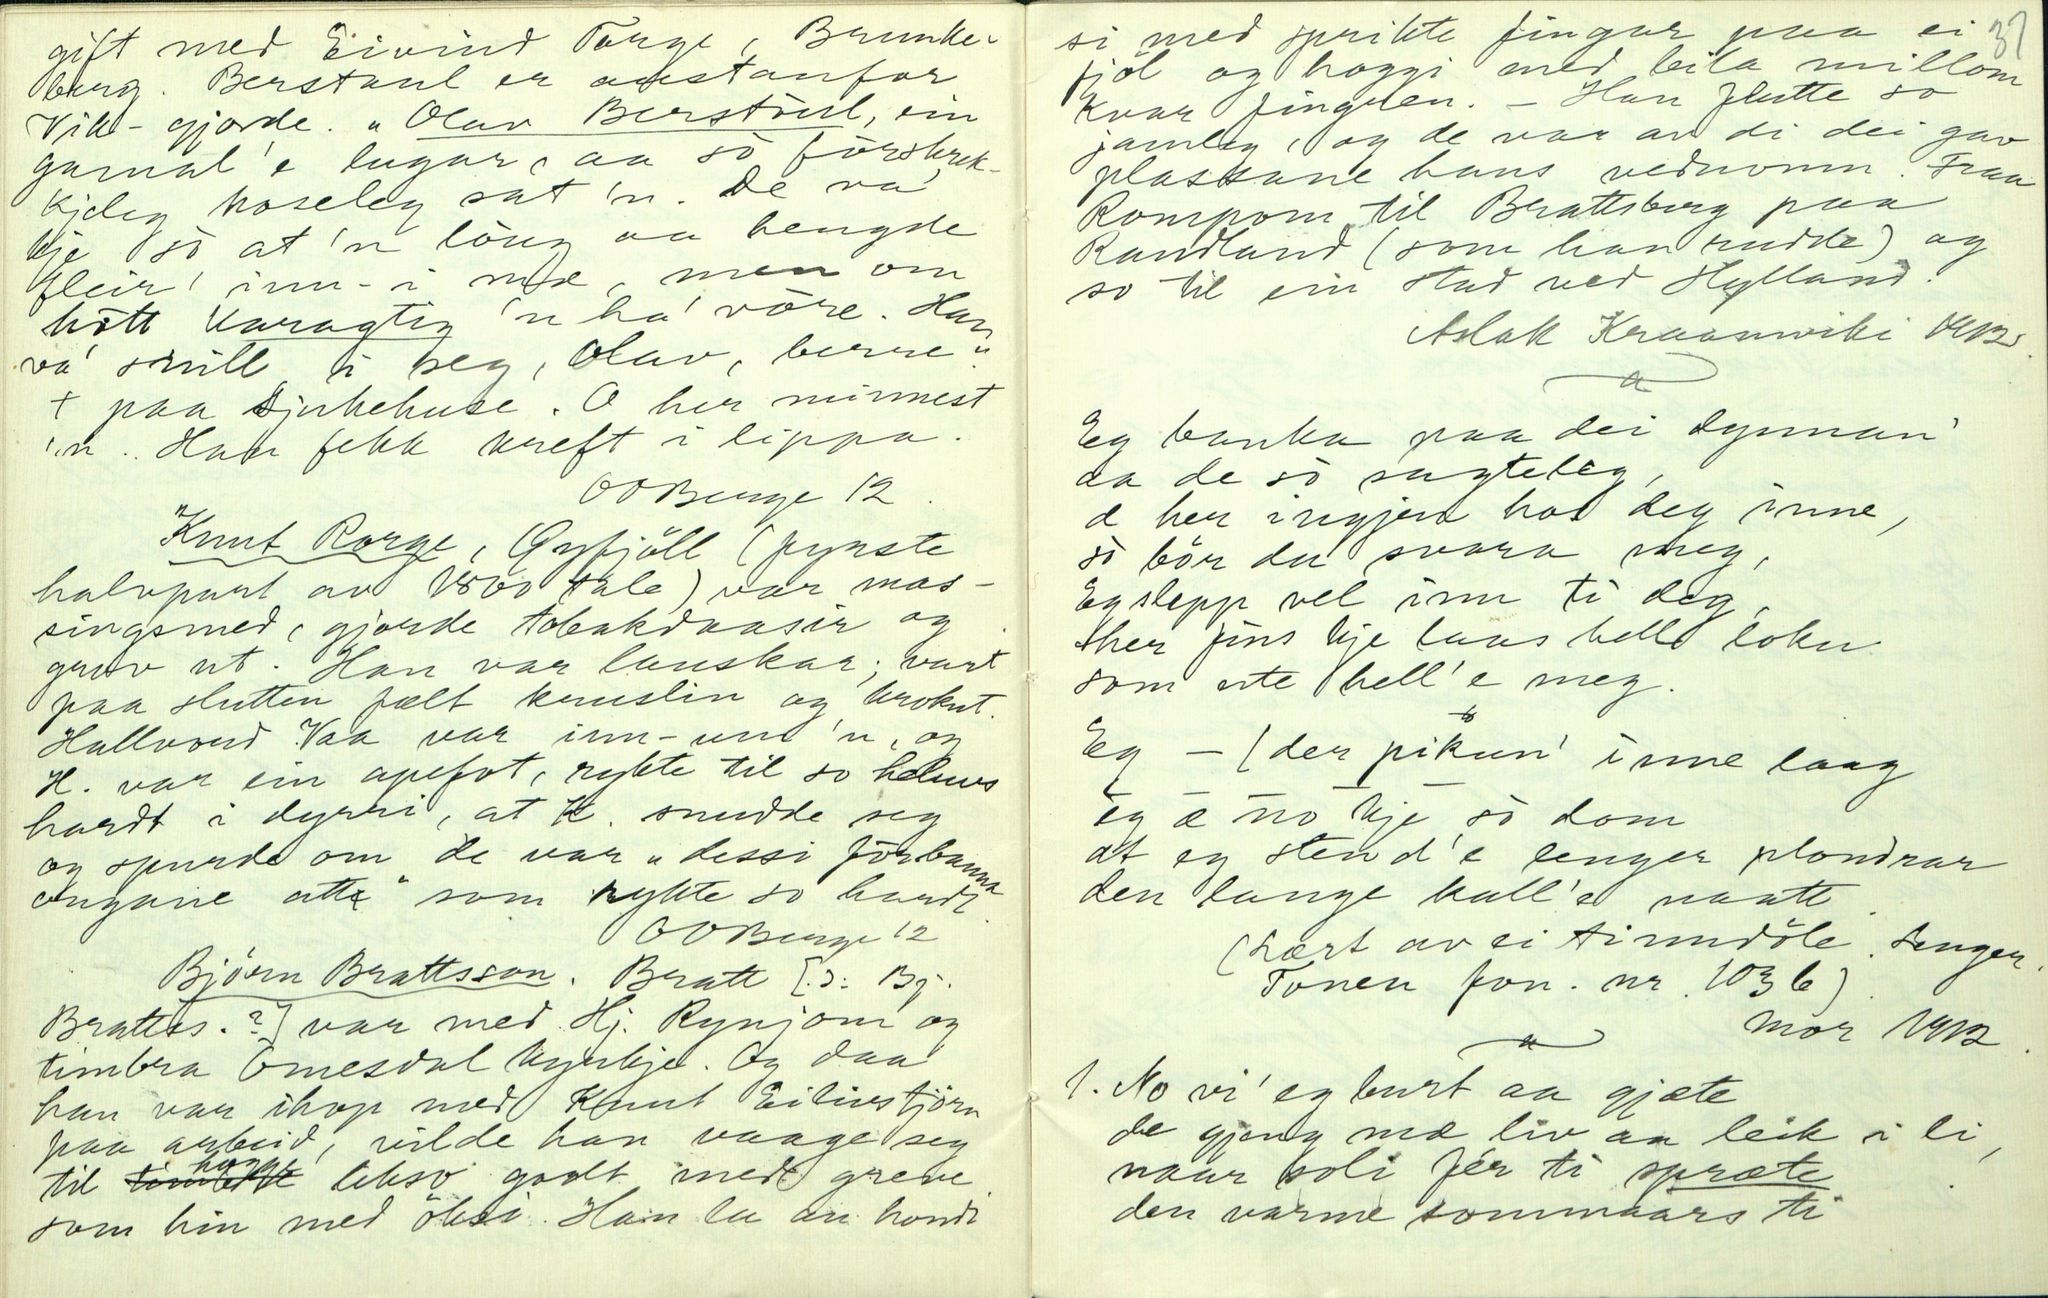 gift med Eivind Targe, Brunke-
berg. Berstaul er austanfor
Vik-gjorde. "Olav Berstöul, ein
gamal'e lugar, aa sò förskrek-
kjeleg koseleg sat 'n. De va'
kje sò at 'n löug aa hengde
fleir' inn-i mæ, men om
hott karagtig 'n ha' vöre. Han
va' snill i seg, Olav, berre"
+ paa sjukehuse. O her minnest
'n. Han fekk kreft i lippa.
OOBerge 12.
Knut Rorge, Gyfjöll (fyrste
halvpart av 1800 tale) var mas-
singsmed, gjorde tobakdaasir og
grov ut. Han var lauskar; vart
paa slutten fælt kruslin og krokut.
Hallvord Vaa var inn-um 'n, og
H. var ein apefot, rykte til so
hardt i dyrri, at K. snudde seg
og spurde om de var "dessi förbanna
ongane atte" som rykte so hardt.
OOBerge 12
Björn Brattsson. Bratt [ɔ: Bj.
Bratts.?] var med Hj. Rynjom og
timbra Omesdal kyrkje. Og daa
han var ihop med Knut Eilivstjörn
paa arbeid, vilde han vaage seg
til hogge likso godt med greve
som hin med öksi. Han la an hondi
37
si med sprikte fingar paa ei
fjöl og hoggi med bila millom
kvar fingren. - Han flutte so
jamleg, og de var av di dei gav
plassane hans vednomn. Fraa
Rompom til Brattsberg paa
Randland (som han rudde) og
so til ein stad ved Hylland.
Aslak Kraanwiki 1912.
Eg banka paa dei dynnan'
aa de sò sagteleg,
d her ingjen hos deg inne,
sò bör du svara meg,
Eg slepp vel inn ti deg,
her fins kje laas hell loku
som ute hell'e meg.
Eg - (der pikun' inne laag
eg æ no kje sò dom
at eg stend'e lenger plondrar
den lange kall'e naatt.
(Lært av ei tinndöle. Senger.
Tonen fon. nr. 103 b)
Mor 1912.
1. No vi' eg burt aa gjæte
de gjeng mæ liv aa leik i li,
naar soli fér ti spræte
den varme sommaars ti